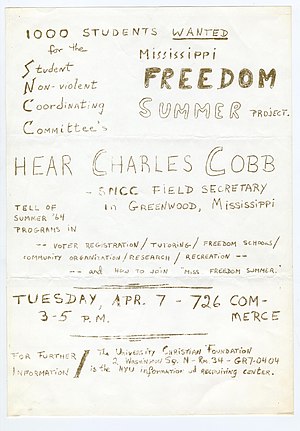 1000 STUDENTS WANTED
for the
Student
Non-violent
Coordinating
Committee's
Mississippi
FREEDOM
SUMMER PROJECT.
HEAR CHARLES COBB
- SNCC FIELD SECRETARY
in GREENWOOD, MISSISSIPPI
TELL OF
SUMMER '64
PROGRAMS IN
-- VOTER REGISTRATION / TUTORING / FREEDOM SCHOOLS /
COMMUNITY ORGANIZATION / RESEARCH / RECREATION --
-- and HOW TO JOIN "MISS. FREEDOM SUMMER."
TUESDAY, APR. 7 - 726 COM-
3-5 P.M. MERCE
FOR FURTHER
INFORMATION /
The University Christian Foundation
2 Washington Sq. N - Rm 34 - GR7-0404
is the NYU information and recruiting center.